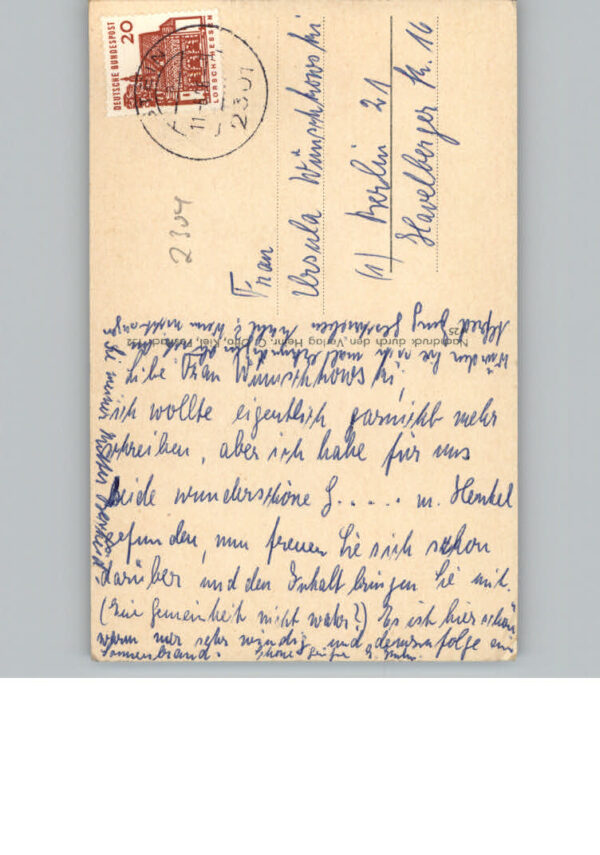 DEUTSCHE BUNDESPOST
20
LORSCH/HESSEN
2301
2304
Frau
Ursula Wünschkowski
(1) Berlin 21
Havelberger Str. 16
Nachdruck durch den Verlag Heinr. C. Otto, Kiel, Postfach
Liebe Frau Wünschkowski,
ich wollte eigentlich garnicht mehr
schreiben, aber ich habe für uns
beide wunderschöne G..... m. Henkel
gefunden, nun freuen Sie sich schon
darüber und den Inhalt bringen Sie mit.
(Eine Gemeinheit nicht wahr?) Es ist hier schön
warm nur sehr windig und demzufolge ein
Sonnenbrand.
Würden Sie sich mal erkundigen ob
Alfred Jung geschrieben hat? Wenn nicht
bei meiner Mutter